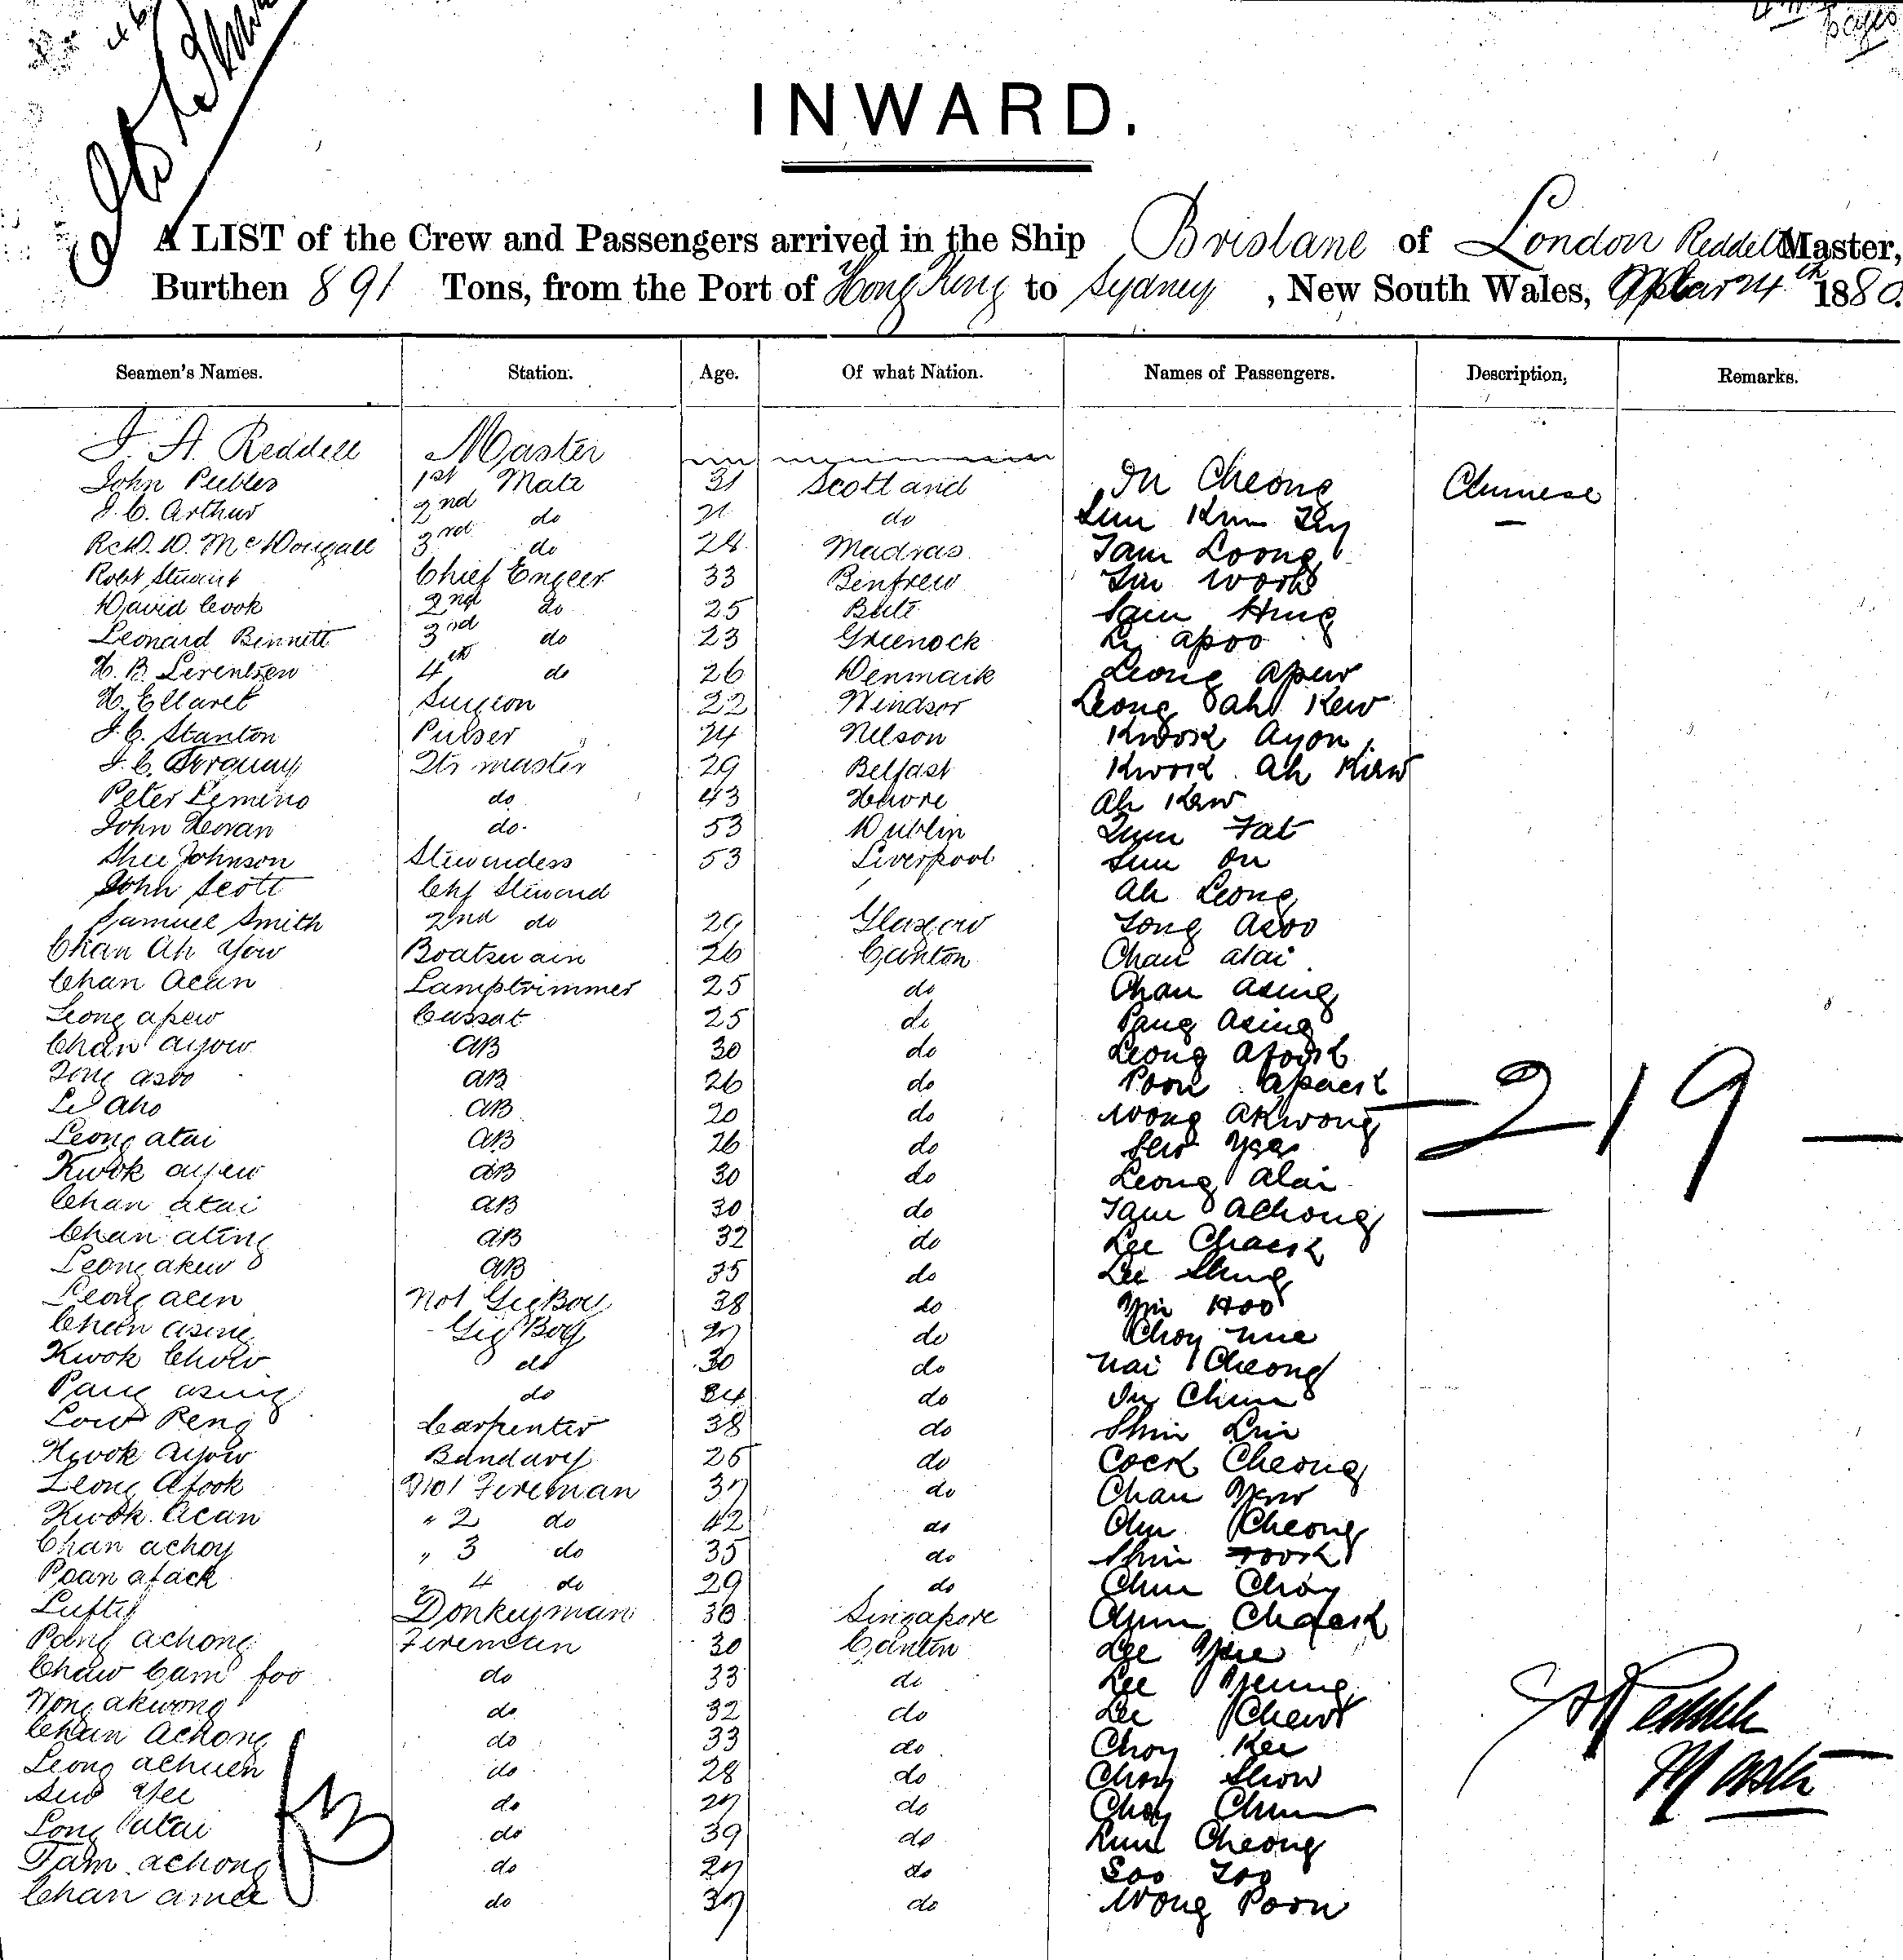 INWARD.
A LIST of the Crew and Passengers arrived in the Ship Brisbane of London Reddell Master,
Burthen 891 Tons, from the Port of Hong Kong to Sydney, New South Wales, 1880.
Seamen's Names. Station. Age. Of what Nation. Names of Passengers. Description, Remarks.
J. A. Reddell Master
John Peebles 1st Mate 31 Scotland In Cheong Chinese
J. C. Arthur 2nd do 21 do
McDougall 3rd do 28 Madras Tam Loong
Robt Stuart Chief Engeer 33 Renfrew
David Cook 2nd do 25 Bute Sam Hing
Leonard Bennett 3rd do 23 Greenock Li apoo
H. B. Lerentsen 4th do 26 Denmark Leong apew
H. Ellaret Surgeon 22 Windsor Leong ah Kew
J. C. Stanton Purser 24 Nelson Kwok Ayon
J. C. Qtr master 29 Belfast Kwok ah Kew
Peter Lemino do 43 Havre Ah Kew
John Horan do 53 Dublin Fat
Johnson Stewardess 53 Liverpool Sun On
John Scott Chf Steward Ah Leong
Samuel Smith 2nd do 29 Glasgow Tong Asoo
Chan Ah Yow Boatswain 26 Canton Chan atai
Chan Acan Lamptrimmer 25 do Chan asing
Leong apew Cassat 25 do Pang Asing
Chan ayow AB 30 do Leong Afook
Tong asoo AB 26 do Poon apack
Le Aho AB 20 do Wong Akwong
Leong atai AB 26 do Sew Yee
Kwok ayew AB 30 do Leong Alai
Chan atai AB 30 do Tam Achong
219
Chan ating AB 32 do Lee Chack
Leong akew AB 35 do Lee Shing
Leong acen No1 Gig Boy 38 do Yin Hoo
Chan asing Gig Boy 27 do Choy
Kwok Chow do 30 do Nai Cheong
Pang asing do 24 do
Low Peng Carpenter 38 do Shin
Kwok Ayow Bandary 26 do Cock Cheong
Leong Afook No1 Fireman 37 do Chan Yew
Kwok Acan " 2 do 42 do Chu Cheong
Chan achoy " 3 do 35 do Shin Fook
Poan afack 4 do 29 do Chun Choy
Lufty Donkeyman 30 Singapore Chun Chack
Pang achong Fireman 30 Canton Lee
Chaw Cam foo do 33 do Lee
Wong akwong do 32 do Lee Chew
Chan Achong do 33 do Choy Kee
Leong achuen do 28 do Choy Show
Sew Yee do 27 do Choy Chun
Long atai do 39 do Lum Cheong
Tam achong do 27 do Soo Too
Chan amee do 37 do Wong Poon
Reddell
Master